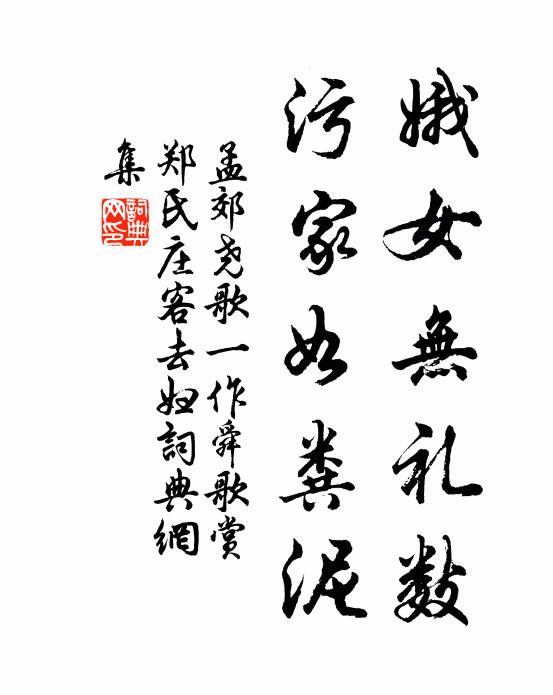 娥女無礼数
污家如粪泥
孟郊尧歌一作舜歌赏
郑氏庄客去妞詞典網
集
詞典網印